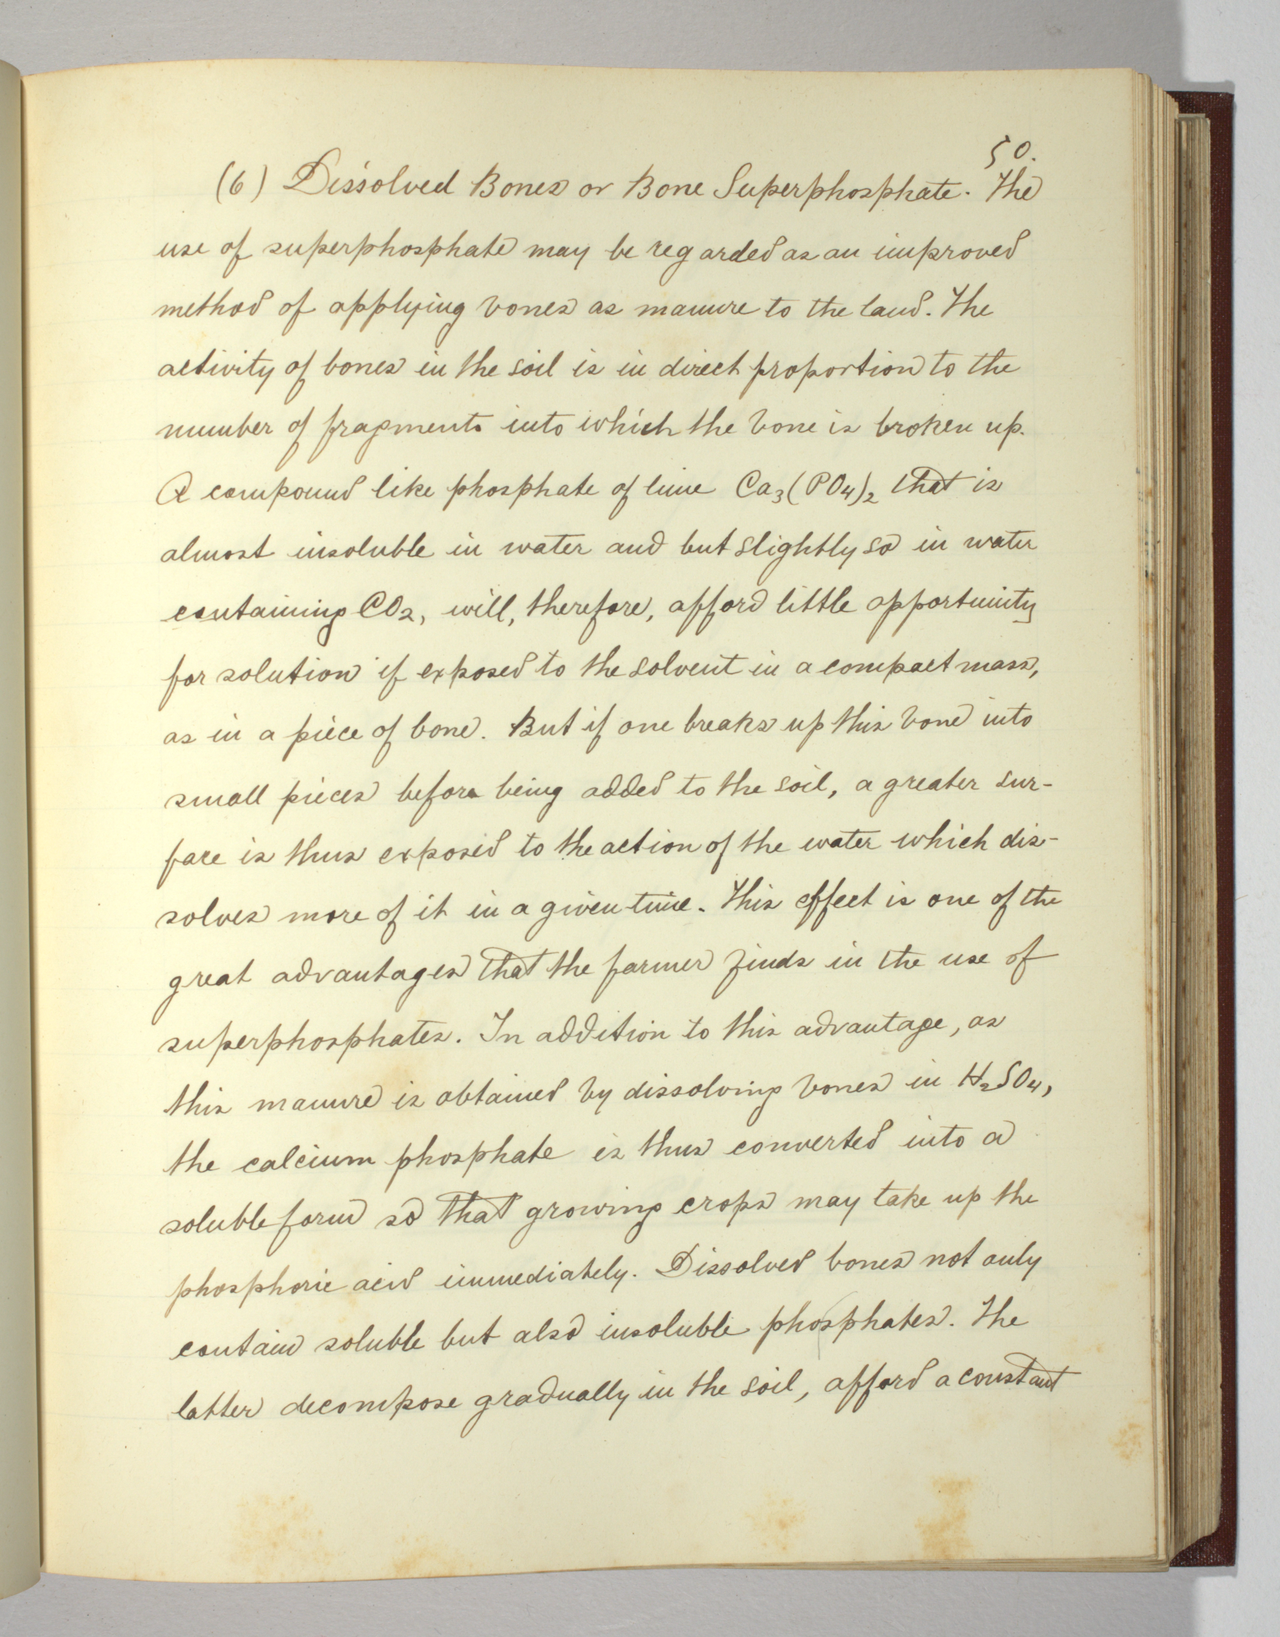 50.
(6) Dissolved Bones or Bone Superphosphate. The
use of superphosphate may be regarded as an improved
method of applying bones as manure to the land. The
activity of bones in the soil is in direct proportion to the
number of fragments into which the bone is broken up.
A compound like phosphate of lime Ca₃(PO₄)₂ that is
almost insoluble in water and but slightly so in water
containing CO₂, will, therefore, afford little opportunity
for solution if exposed to the solvent in a compact mass,
as in a piece of bone. But if one breaks up this bone into
small pieces before being added to the soil, a greater sur-
face is thus exposed to the action of the water which dis-
solves more of it in a given time. This effect is one of the
great advantages that the farmer finds in the use of
superphosphates. In addition to this advantage, as
this manure is obtained by dissolving bones in H₂SO₄,
the calcium phosphate is thus converted into a
soluble form so that growing crops may take up the
phosphoric acid immediately. Dissolved bones not only
contain soluble but also insoluble phosphates. The
latter decompose gradually in the soil, afford a constant